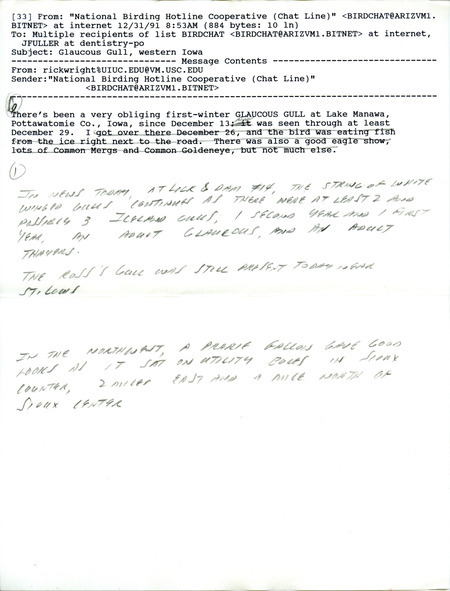 [33] From: "National Birding Hotline Cooperative (Chat Line)" <BIRDCHAT@ARIZVM1.
BITNET> at internet 12/31/91 8:53AM (884 bytes: 10 ln)
To: Multiple recipients of list BIRDCHAT <BIRDCHAT@ARIZVM1.BITNET> at internet,
JFULLER at dentistry-po
Subject: Glaucous Gull, western Iowa
------------------------------- Message Contents -------------------------------
From: rickwright@UIUC.EDU@VM.USC.EDU
Sender:"National Birding Hotline Cooperative (Chat Line)"
<BIRDCHAT@ARIZVM1.BITNET>
--------------------------------------------------------------------------------
There's been a very obliging first-winter GLAUCOUS GULL at Lake Manawa,
Pottawatomie Co., Iowa, since December 13; it was seen through at least
December 29. I got over there December 26, and the bird was eating fish
from the ice right next to the road. There was also a good eagle show,
lots of Common Mergs and Common Goldeneye, but not much else.
1
IN NEWS TODAY, AT LOCK & DAM #14, THE STRING OF WHITE
WINGED GULLS CONTINUES AS THERE WERE AT LEAST 2 AND
POSSIBLY 3 ICELAND GULLS, 1 SECOND YEAR AND 1 FIRST
YEAR, AN ADULT GLAUCOUS, AND AN ADULT
THAYERS.
THE ROSS'S GULL WAS STILL PRESENT TODAY NEAR
ST. LOUIS
IN THE NORTHWEST, A PRAIRIE FALCON GAVE GOOD
LOOKS AS IT SAT ON UTILITY POLES IN SIOUX
COUNTY, 2 MILES EAST AND 1 MILE NORTH OF
SIOUX CENTER